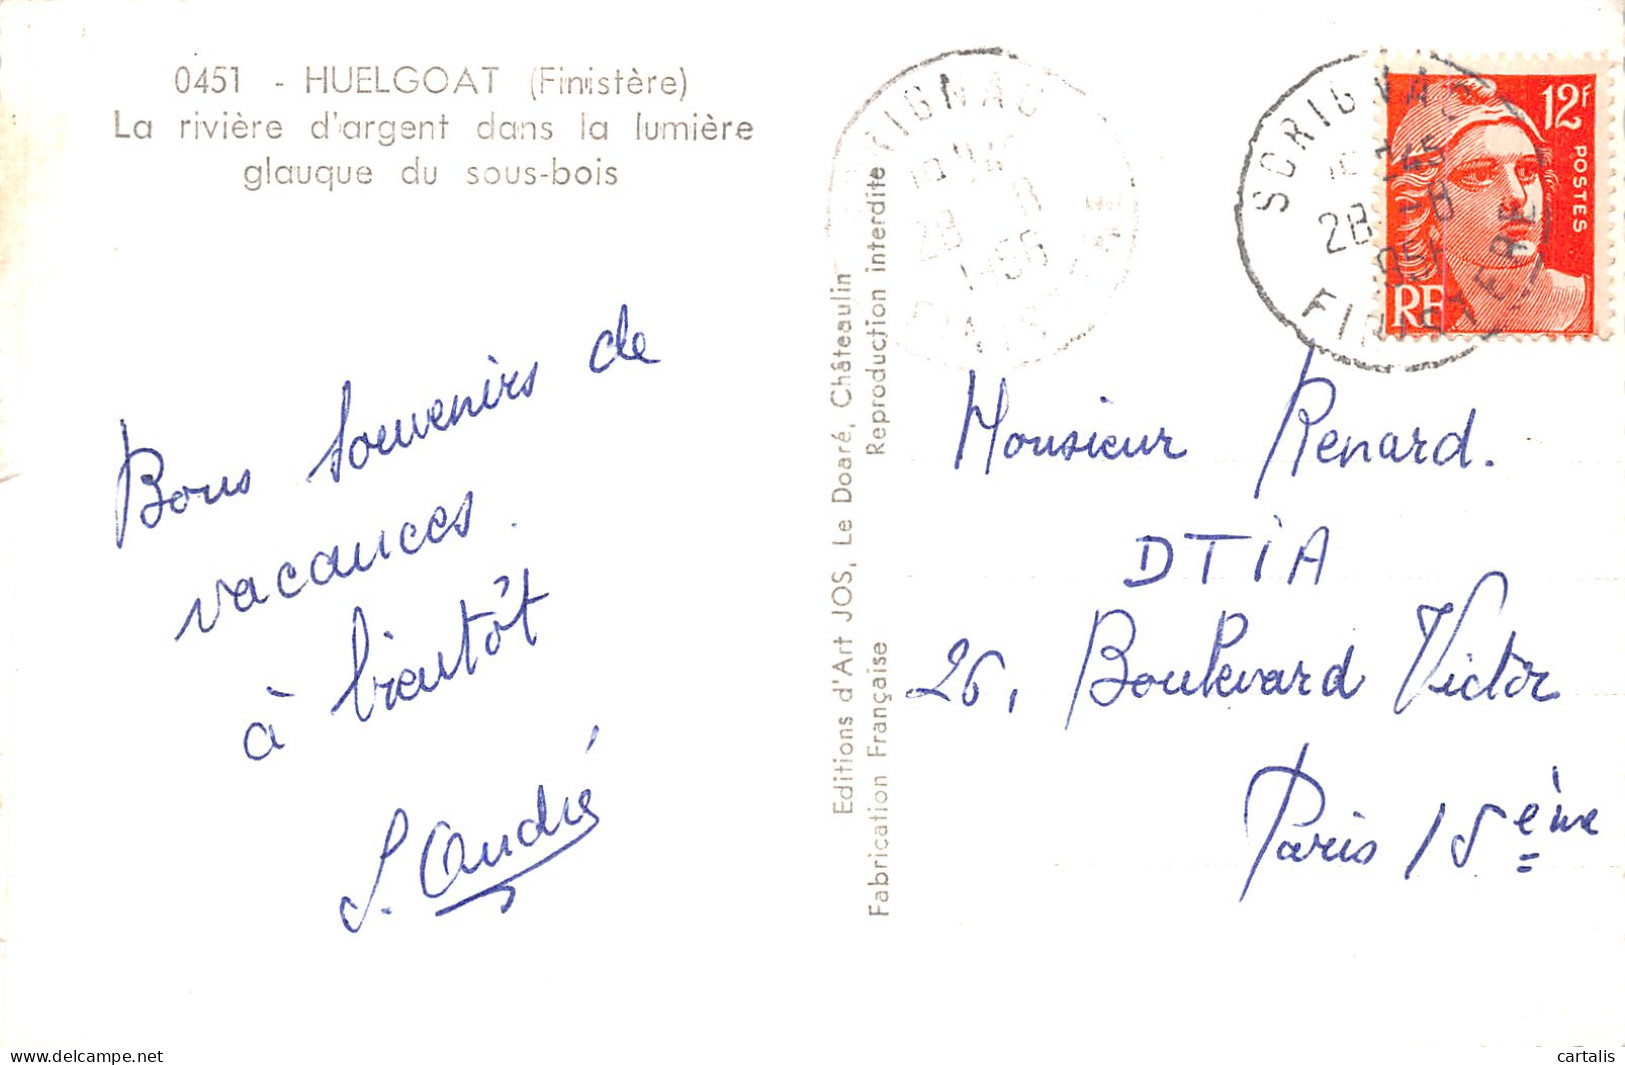 0451 - HUELGOAT (Finistère)
La rivière d'argent dans la lumière
glauque du sous-bois
Bons souvenirs de
vacances.
à bientôt
S. André
Editions d'Art JOS, Le Doaré, Châteaulin
Fabrication Française Reproduction interdite
28 8
1956
SCRIGNAC
28 8
FINISTERE
12F
POSTES
RF
Monsieur Renard.
DTIA
26, Boulevard Victor
Paris 15ème
www.delcampe.net
cartalis